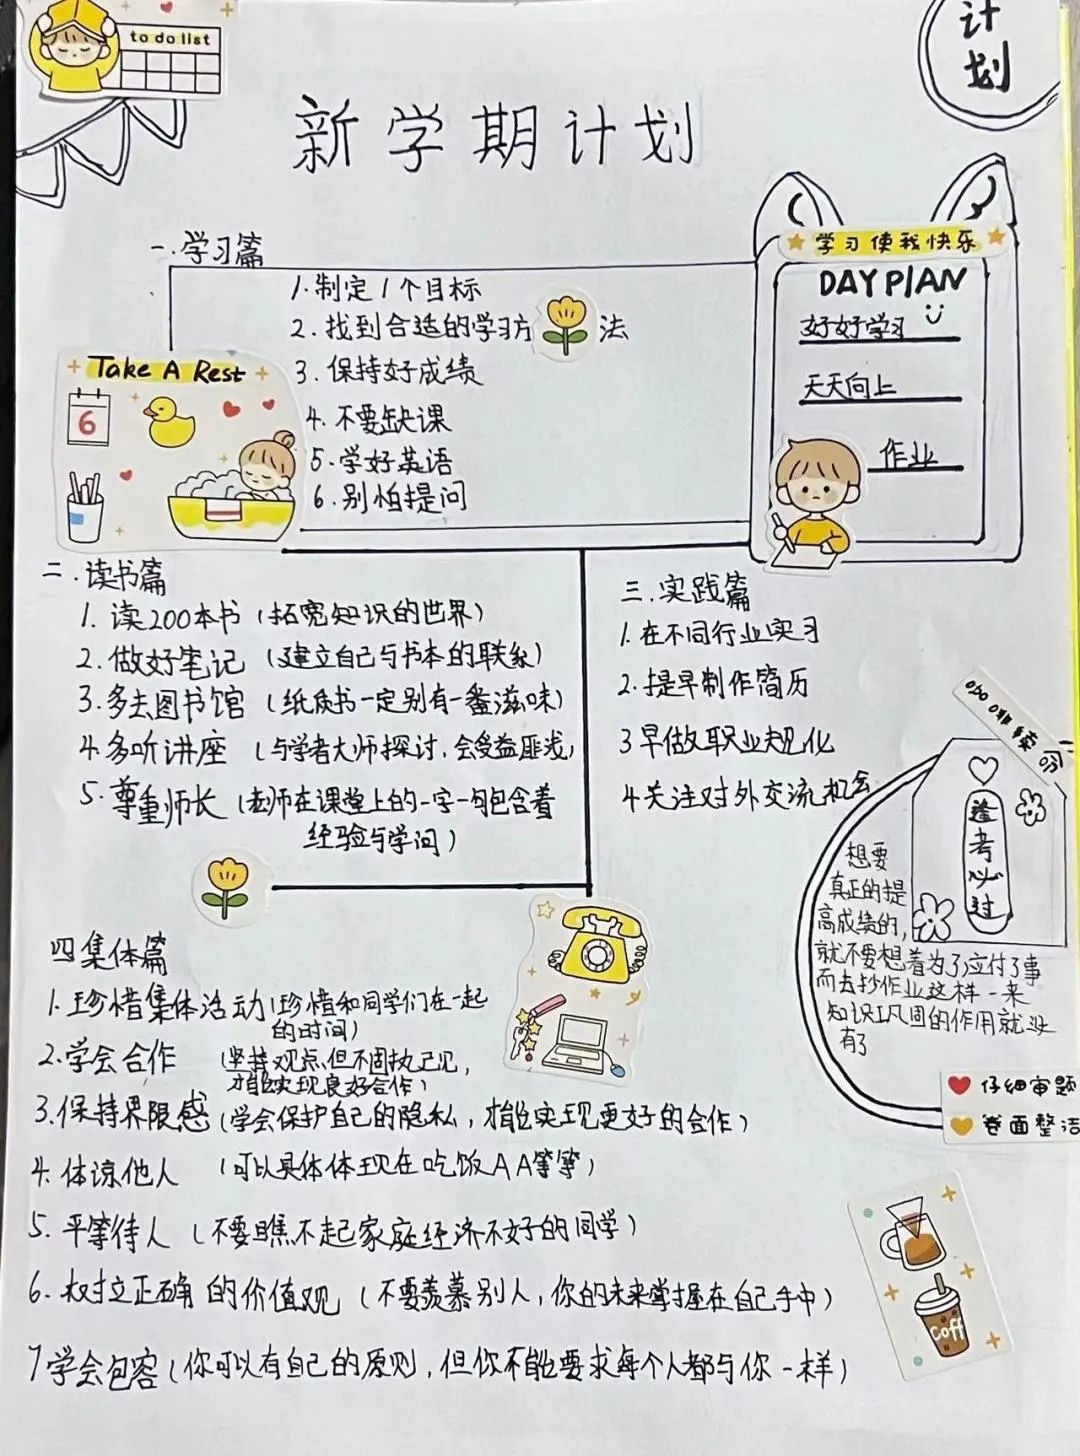 to do list
计
划
新学期计划
一.学习篇
1.制定1个目标
2.找到合适的学习方法
3.保持好成绩
4.不要缺课
5.学好英语
6.别怕提问
学习使我快乐
DAY PlAN
好好学习
天天向上
作业
Take A Rest
6
二.读书篇
1.读200本书(拓宽知识的世界)
2.做好笔记(建立自己与书本的联系)
3.多去图书馆(纸质书一定别有一番滋味)
4.多听讲座(与学者大师探讨,会受益匪浅)
5.尊重师长(老师在课堂上的一字一句包含着
经验与学问)
三.实践篇
1.在不同行业实习
2.提早制作简历
3早做职业规化
4关注对外交流机会
逢
考
必
过
想要
真正的提
高成绩的,
就不要想着为了应付了事
而去抄作业这样一来
知识巩固的作用就没
有了
仔细审题
卷面整洁
四集体篇
1.珍惜集体活动(珍惜和同学们在一起
的时间)
2.学会合作(坚持观点,但不固执己见,
才能实现良好合作)
3.保持界限感(学会保护自己的隐私,才能实现更好的合作)
4.体谅他人(可以具体体现在吃饭AA等等)
5.平等待人(不要瞧不起家庭经济不好的同学)
6.树立正确的价值观(不要羡慕别人,你的未来掌握在自己手中)
7学会包容(你可以有自己的原则,但你不能要求每个人都与你一样)
Coff